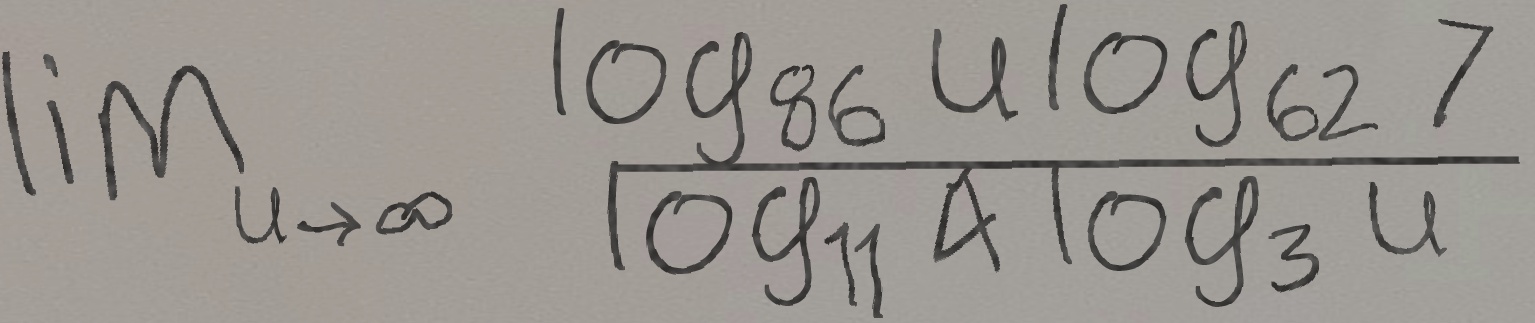 \lim_{u \to \infty} \frac{\log_{86} u \log_{62} 7}{\log_{11} 4 \log_{3} u}